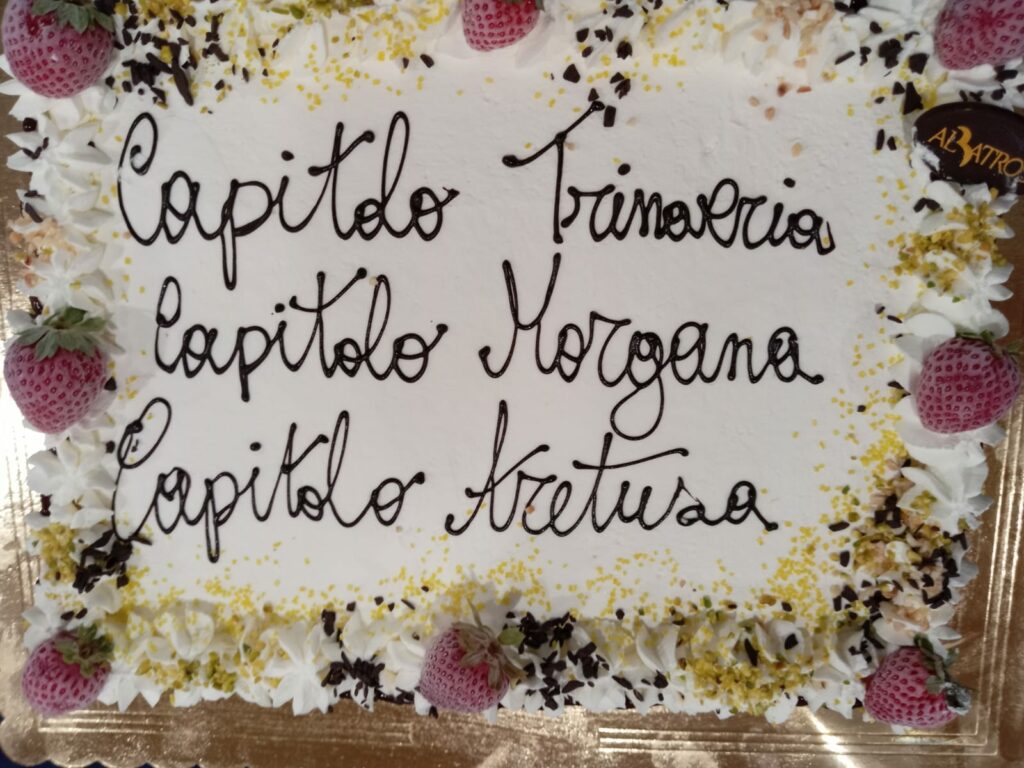 Capitolo Trinacria
Capitolo Morgana
Capitolo Aretusa
ALBATRO